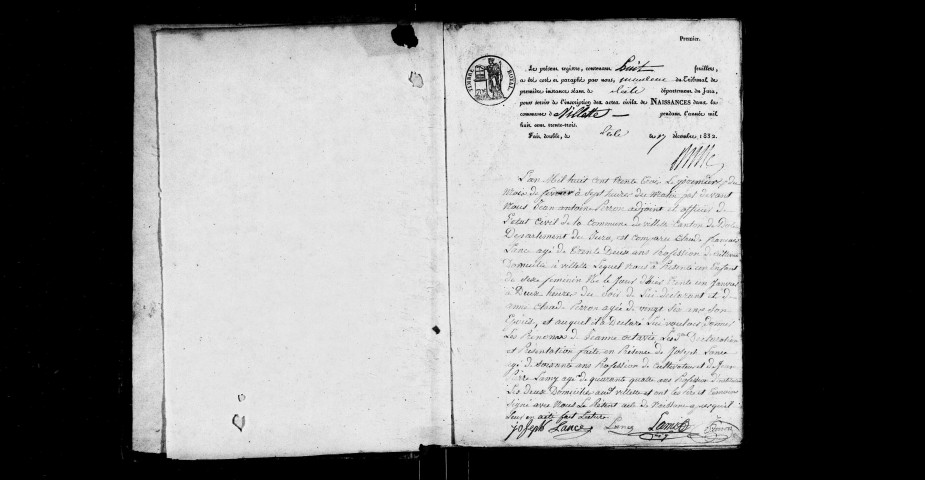 Premier.
TIMBRE ROYAL
Le présent registre, contenant huit feuillets,
a été coté et paraphé par nous, du Tribunal de
première instance séant à Dôle département du Jura,
pour servir à l'inscription des actes civils de NAISSANCES dans la
commune d Villette pendant l'année mil
huit cent trente-trois.
Fait double, à Dôle le 17 décembre 1832.
L'an Mil huit cent trente trois Le premier du
Mois de fevrier à Sept heures du Matin par devant
Nous Jean antoine Perron adjoint et officier de
L'etat Civil de la Commune de villette Canton de Dole
Departement du Jura, est comparu Claude françois
Lance agé de trente Deux ans Profession de
Domicilié à villette Lequel Nous à Présenté un Enfant
de Sexe feminin Né le Jour d'hier trente un Janvier
à Deux heures du Soir de Lui declarant et de
anne Claude Perron agée de vingt Six ans Son
Epouse, et auquel il a Declaré Lui vouloir Donner
Les Prenoms de Jeanne octavie, Les Declaration
et Présentation faite en Présence de Joseph Lance
agé de Soixante ans Profession de Cultivateur et de Jean
Lamy agé de quarante quatre ans Profession
Les Deux Domiciliés audit villette et ont Les
Signé avec Nous Le Présent acte de Naissance, après qu'il
Leur en a été fait Lecture
Joseph Lance Lance Lamy Perron